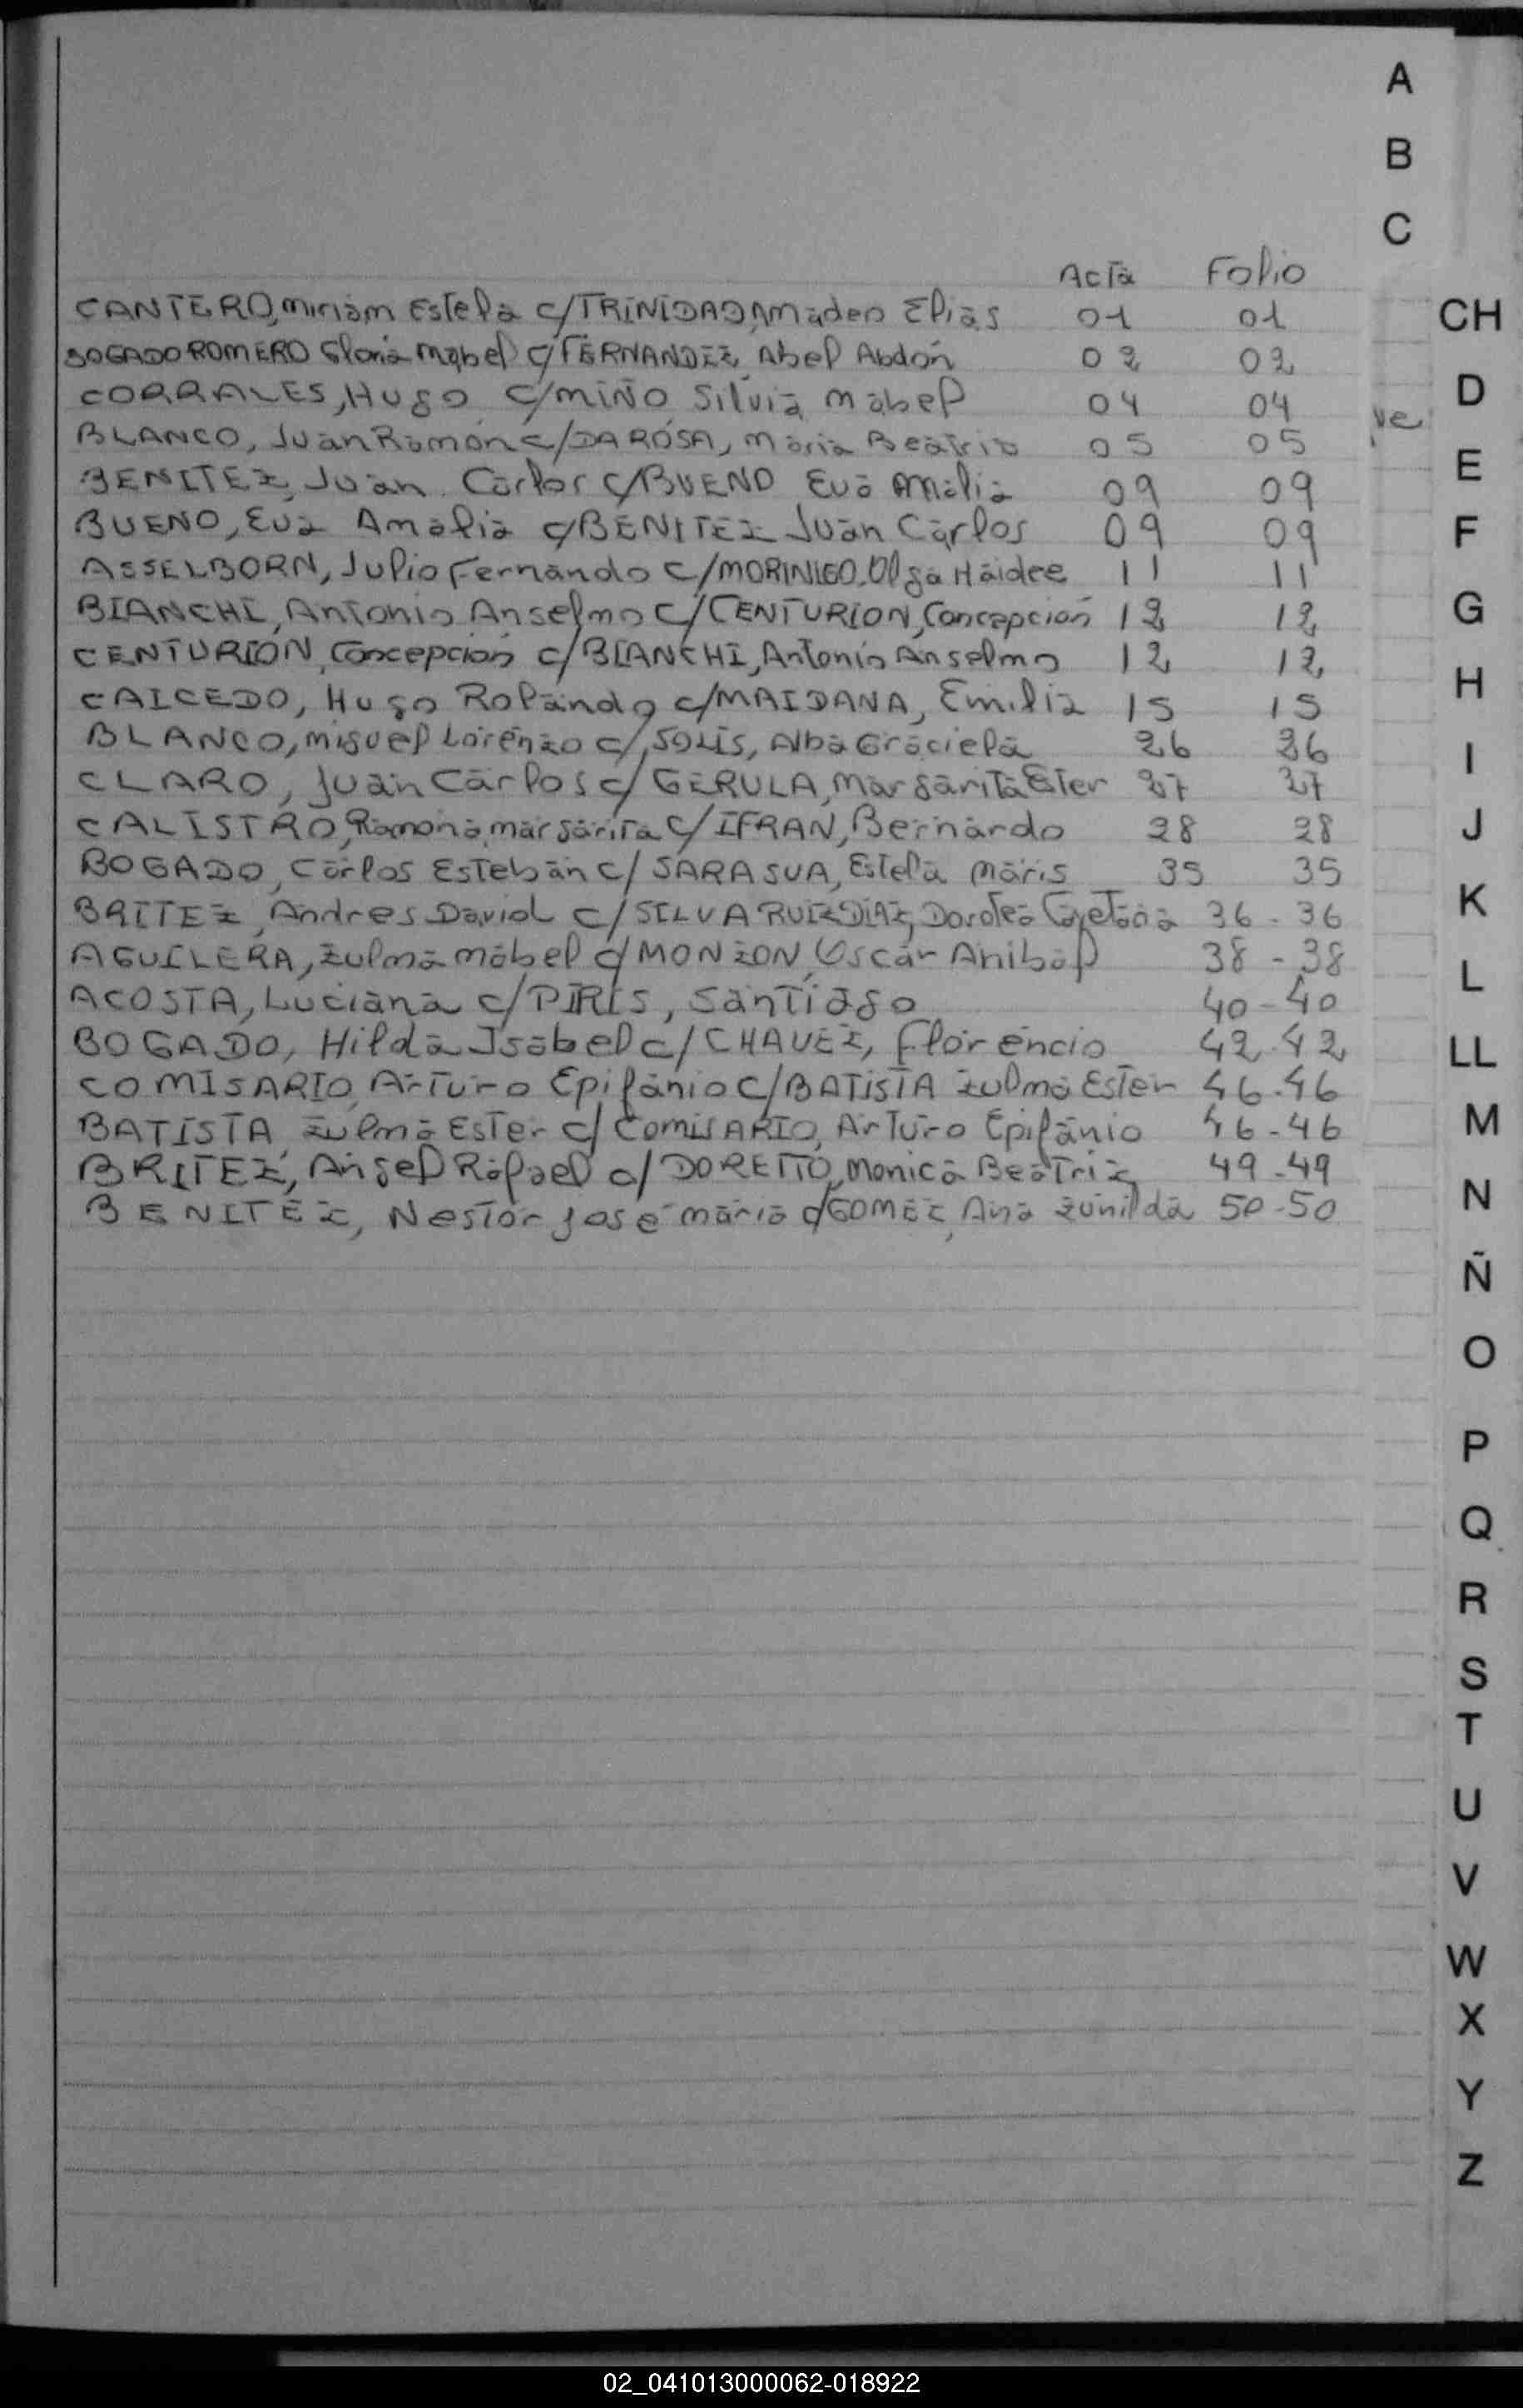 A
B
C
Acta Folio
CANTERO, Miriam Estela c/TRINIDAD, Amadeo Elias 01 01
CH
BOGADO ROMERO Gloria Mabel c/FERNANDEZ, Abel Abdón 02 02
CORRALES, Hugo c/MIÑO Silvia Mabel 04 04
D
ve
BLANCO, Juan Ramón c/DA ROSA, Maria Beatriz 05 05
E
BENITEZ, Juan Carlos c/BUENO Eva Amalia 09 09
BUENO, Eva Amalia c/BENITEZ Juan Carlos 09 09
F
ASSELBORN, Julio Fernando c/MORINIGO, Olga Haidee 11 11
BIANCHI, Antonio Anselmo c/CENTURION, Concepción 12 12
G
CENTURION, Concepción c/BIANCHI, Antonio Anselmo 12 12
H
CAICEDO, Hugo Rolando c/MAIDANA, Emilia 15 15
BLANCO, Miguel Lorenzo c/SOLIS, Alba Graciela 26 26
I
CLARO, Juan Carlos c/GERULA, Margarita Ester 27 27
CALISTRO, Ramona Margarita c/IFRAN, Bernardo 28 28
J
BOGADO, Carlos Esteban c/SARASUA, Estela Maris 35 35
BRITEZ, Andres David c/SILVA RUIZ DIAZ, Dorotea Cayetana 36-36
K
AGUILERA, Zulma Mabel c/MONZON, Oscar Anibal 38-38
L
ACOSTA, Luciana c/PIRIS, Santiago 40-40
BOGADO, Hilda Isabel c/CHAVEZ, Florencio 42-42
LL
COMISARIO, Arturo Epifanio c/BATISTA Zulma Ester 46-46
BATISTA, Zulma Ester c/COMISARIO, Arturo Epifanio 46-46
M
BRITEZ, Angel Rafael c/DORETTO, Monica Beatriz 49-49
BENITEZ, Nestor José María c/GOMEZ, Ana Zunilda 50-50
N
Ñ
O
P
Q
R
S
T
U
V
W
X
Y
Z
02_041013000062-018922